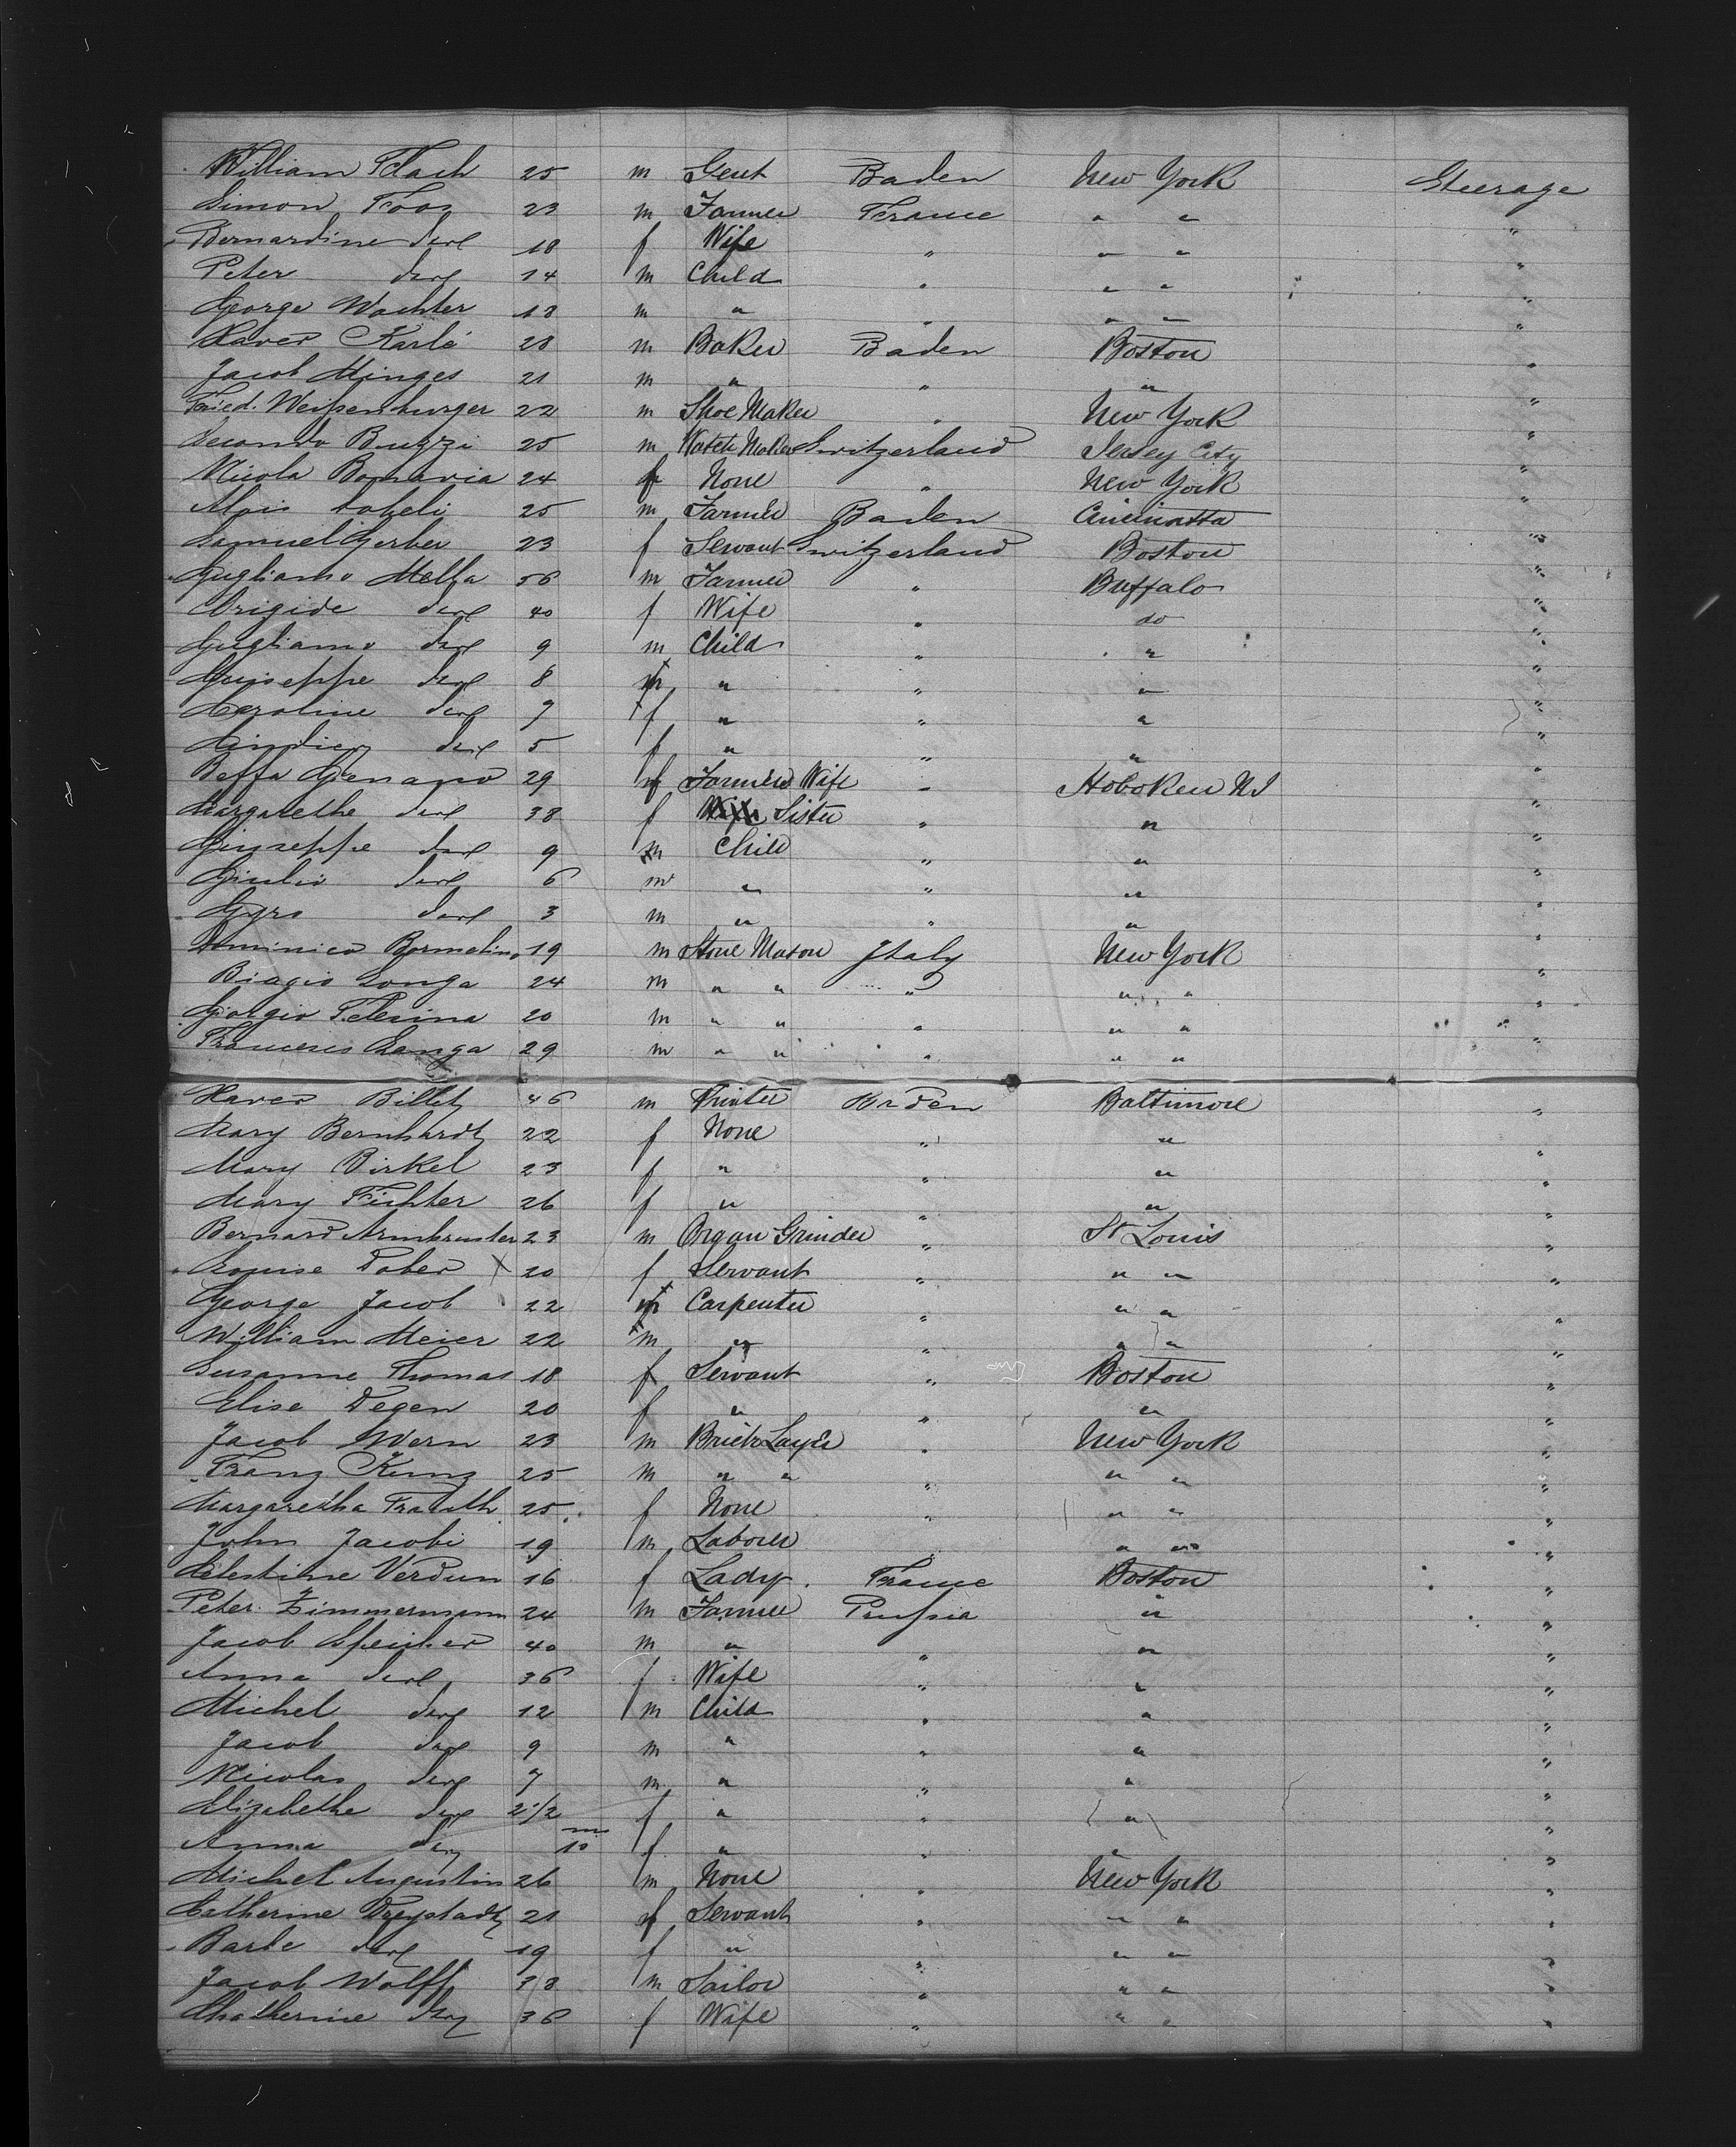 William Flach 25 m Gent Baden New York Steerage
Simon Foos 23 m Farmer France " " "
Bernardine derl 18 f Wife " " " "
Peter derl 14 m Child " " " "
George Wachter 18 m " " " " "
Xaver Karlé 28 m Baker Baden Boston "
Jacob Minges 21 m " " " "
Fried. Weißenburger 22 m Shoe Maker " New York "
Secondo Buzzi 25 m Watch Maker Switzerland Jersey City "
Nicola Bonavia 24 f None " New York "
Alois 25 m Farmer Baden Cincinatta "
Samuel Gerber 23 f Servant Switzerland Boston "
Gugliamo Melfa 56 m Farmer " Buffalo "
Brigide derl 40 f Wife " do "
Gugliamo derl 9 m Child " " "
Guiseppe derl 8 m " " " "
Caroline derl 7 f " " " "
derl 5 f " " " "
Beffa Genaro 29 f Farmers Wife " Hoboken NJ "
Margarethe derl 38 f Wife Sister " " "
Giuseppe derl 9 m Child " " "
Giulio derl 6 m " " " "
Gyro derl 3 m " " " "
Dominico 19 m Stone Mason Italy New York "
Biagio Longa 24 m " " " " " "
Giorgio Pelerina 20 m " " " " " "
Longa 29 m " " " " " "
Xaver Billetz 46 m Printer Baden Baltimore "
Mary Bernhardt 22 f None " " "
Mary Birkel 23 f " " " "
Mary Fichter 26 f " " " "
Bernard Armbruster 23 m Organ Grinder " St Louis "
Louise Faber X 20 f Servant " " " "
George Jacob 22 m Carpenter " " " "
William Meier 22 m " " " " "
Susanne Thomas 18 f Servant " Boston "
Elise Degen 20 f " " " "
Jacob Wern 23 m Brick Layer " New York "
Franz Kunz 25 m " " " " " "
Margaretha 25 f None " " " "
John Jacobi 19 m Laborer " " " "
Celestine Verdun 16 f Lady France Boston "
Peter Zimmermann 24 m Farmer Prußia " "
Jacob Speicher 40 m " " " "
Anna derl 36 f Wife " " "
Michel derl 12 m Child " " "
Jacob derl 9 m " " " "
Nicolas derl 7 m " " " "
Elizabethe derl 2 1/2 f " " " "
Anna derl 10 m f " " " "
Michel Augustin 26 m None " New York "
Catherine Dreystadt 21 f Servant " " " "
Barbe derl 19 f " " " " "
Jacob Wolff 38 m Sailor " " " "
Chatherine derl 36 f Wife " " " "